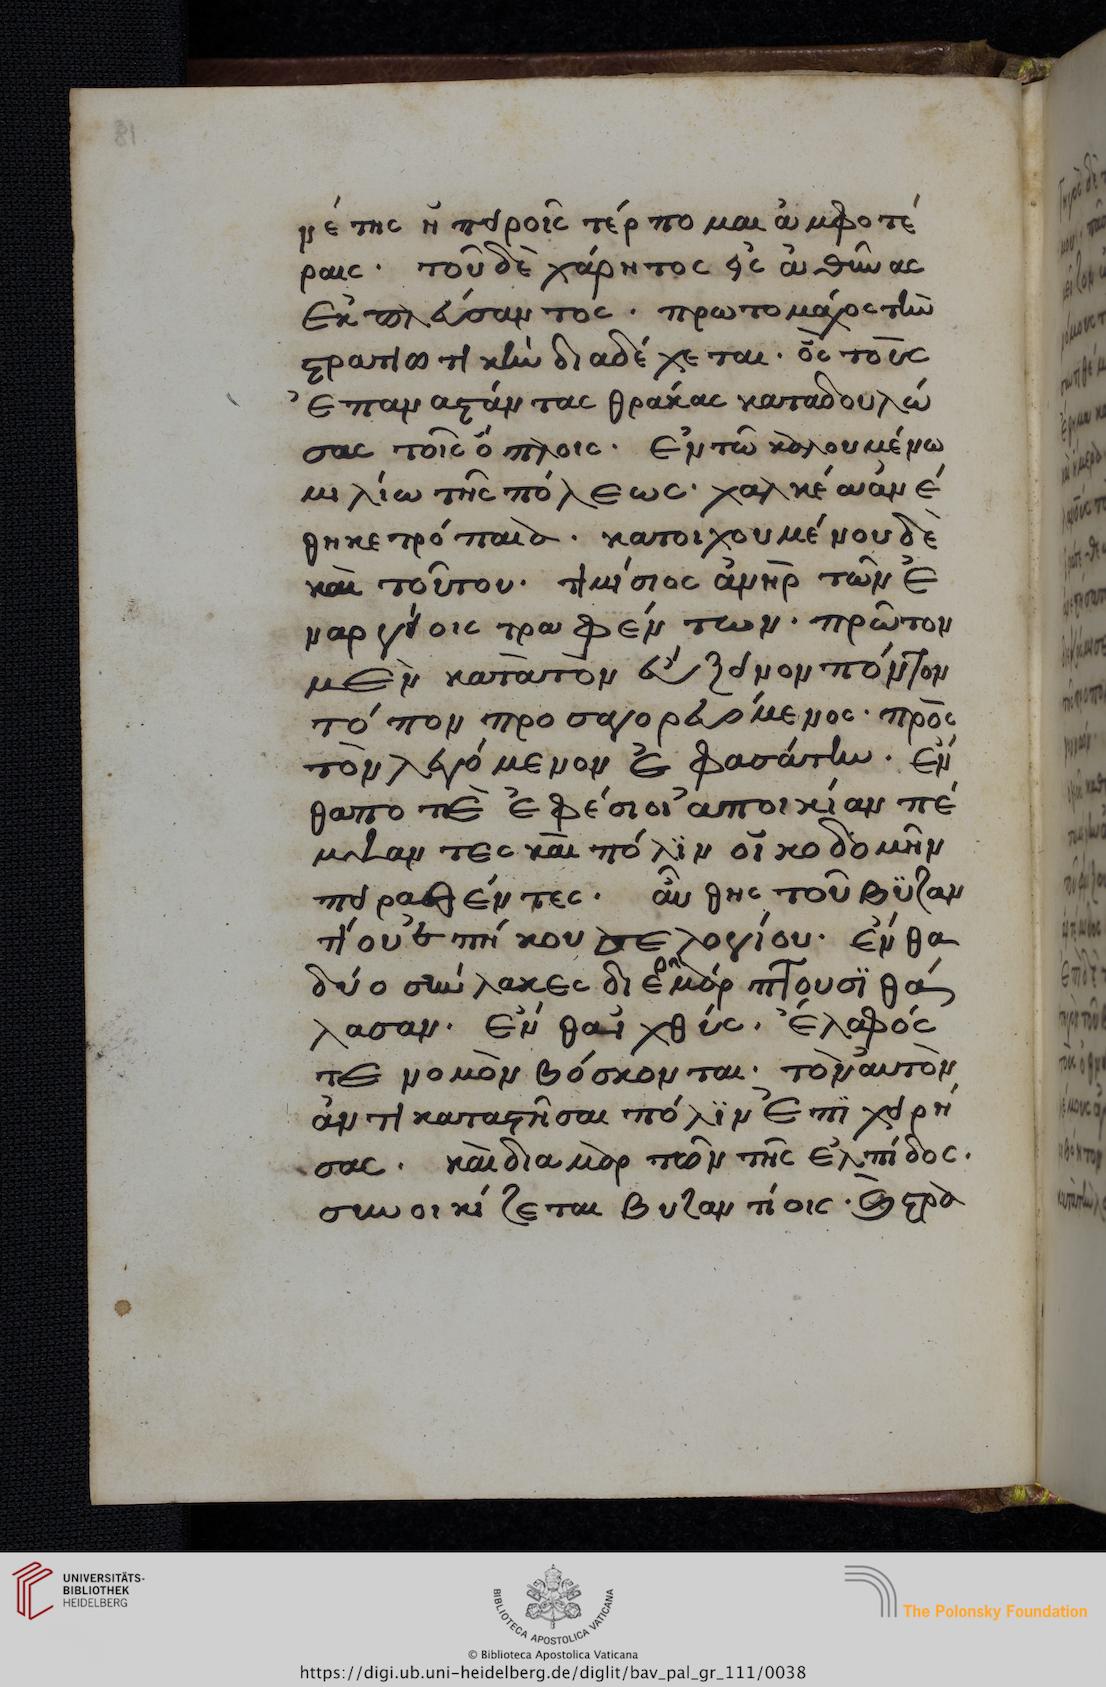 νέτης ἠπείροις τέρπομαι ἀμφοτέ
ραις· τοῦ δὲ χάρητος εἰς ἀθήνας
ἐκπλεύσαντος· πρωτόμαχος τὴν
στρατηγικὴν διαδέχεται· ὃς τοὺς
ἐπαναστάντας θράκας καταδουλώ
σας τοῖς ὅπλοις· ἐν τῶ καλουμένω
μιλίω τῆς πόλεως· χαλκέα ἀνέ
θηκε τρόπαια· κατοιχουμένου δὲ
καὶ τούτου· τιμήσιος ἀνὴρ τῶν ἐ
ναργείοις τραφέντων· πρῶτον
μὲν κατὰ τὸν εὔξεινον πόντον
τόπον προσαγορευόμενος· πρὸς
τὸν λεγόμενον ἐφασάτην· ἔν
θα ποτὲ ἐφέσιοι ἀποικίαν πέ
μψαντες καὶ πόλϊν οἰκοδομεῖν
πειραθέντες· αὖθης τοῦ βϋζαν
τίου ἐπήκου δὲ λογίου· ἔνθα
δύο σκύλακες διερὴν μάρπτουσϊ θά
λασαν· ἔνθα ἰχθὺς· ἔλαφός
τε νομὸν βόσκονται· τὸν αὐτὸν
ἀντικαταστῆσαι πόλϊν ἐπϊχειρή
σας· καὶ διαμαρτὼν τῆς ἐλπίδος·
συνοικίζεται βυζαντίοις· στρα
UNIVERSITÄTS-
BIBLIOTHEK
HEIDELBERG
BIBLIOTECA APOSTOLICA VATICANA
The Polonsky Foundation
© Biblioteca Apostolica Vaticana
https://digi.ub.uni-heidelberg.de/diglit/bav_pal_gr_111/0038